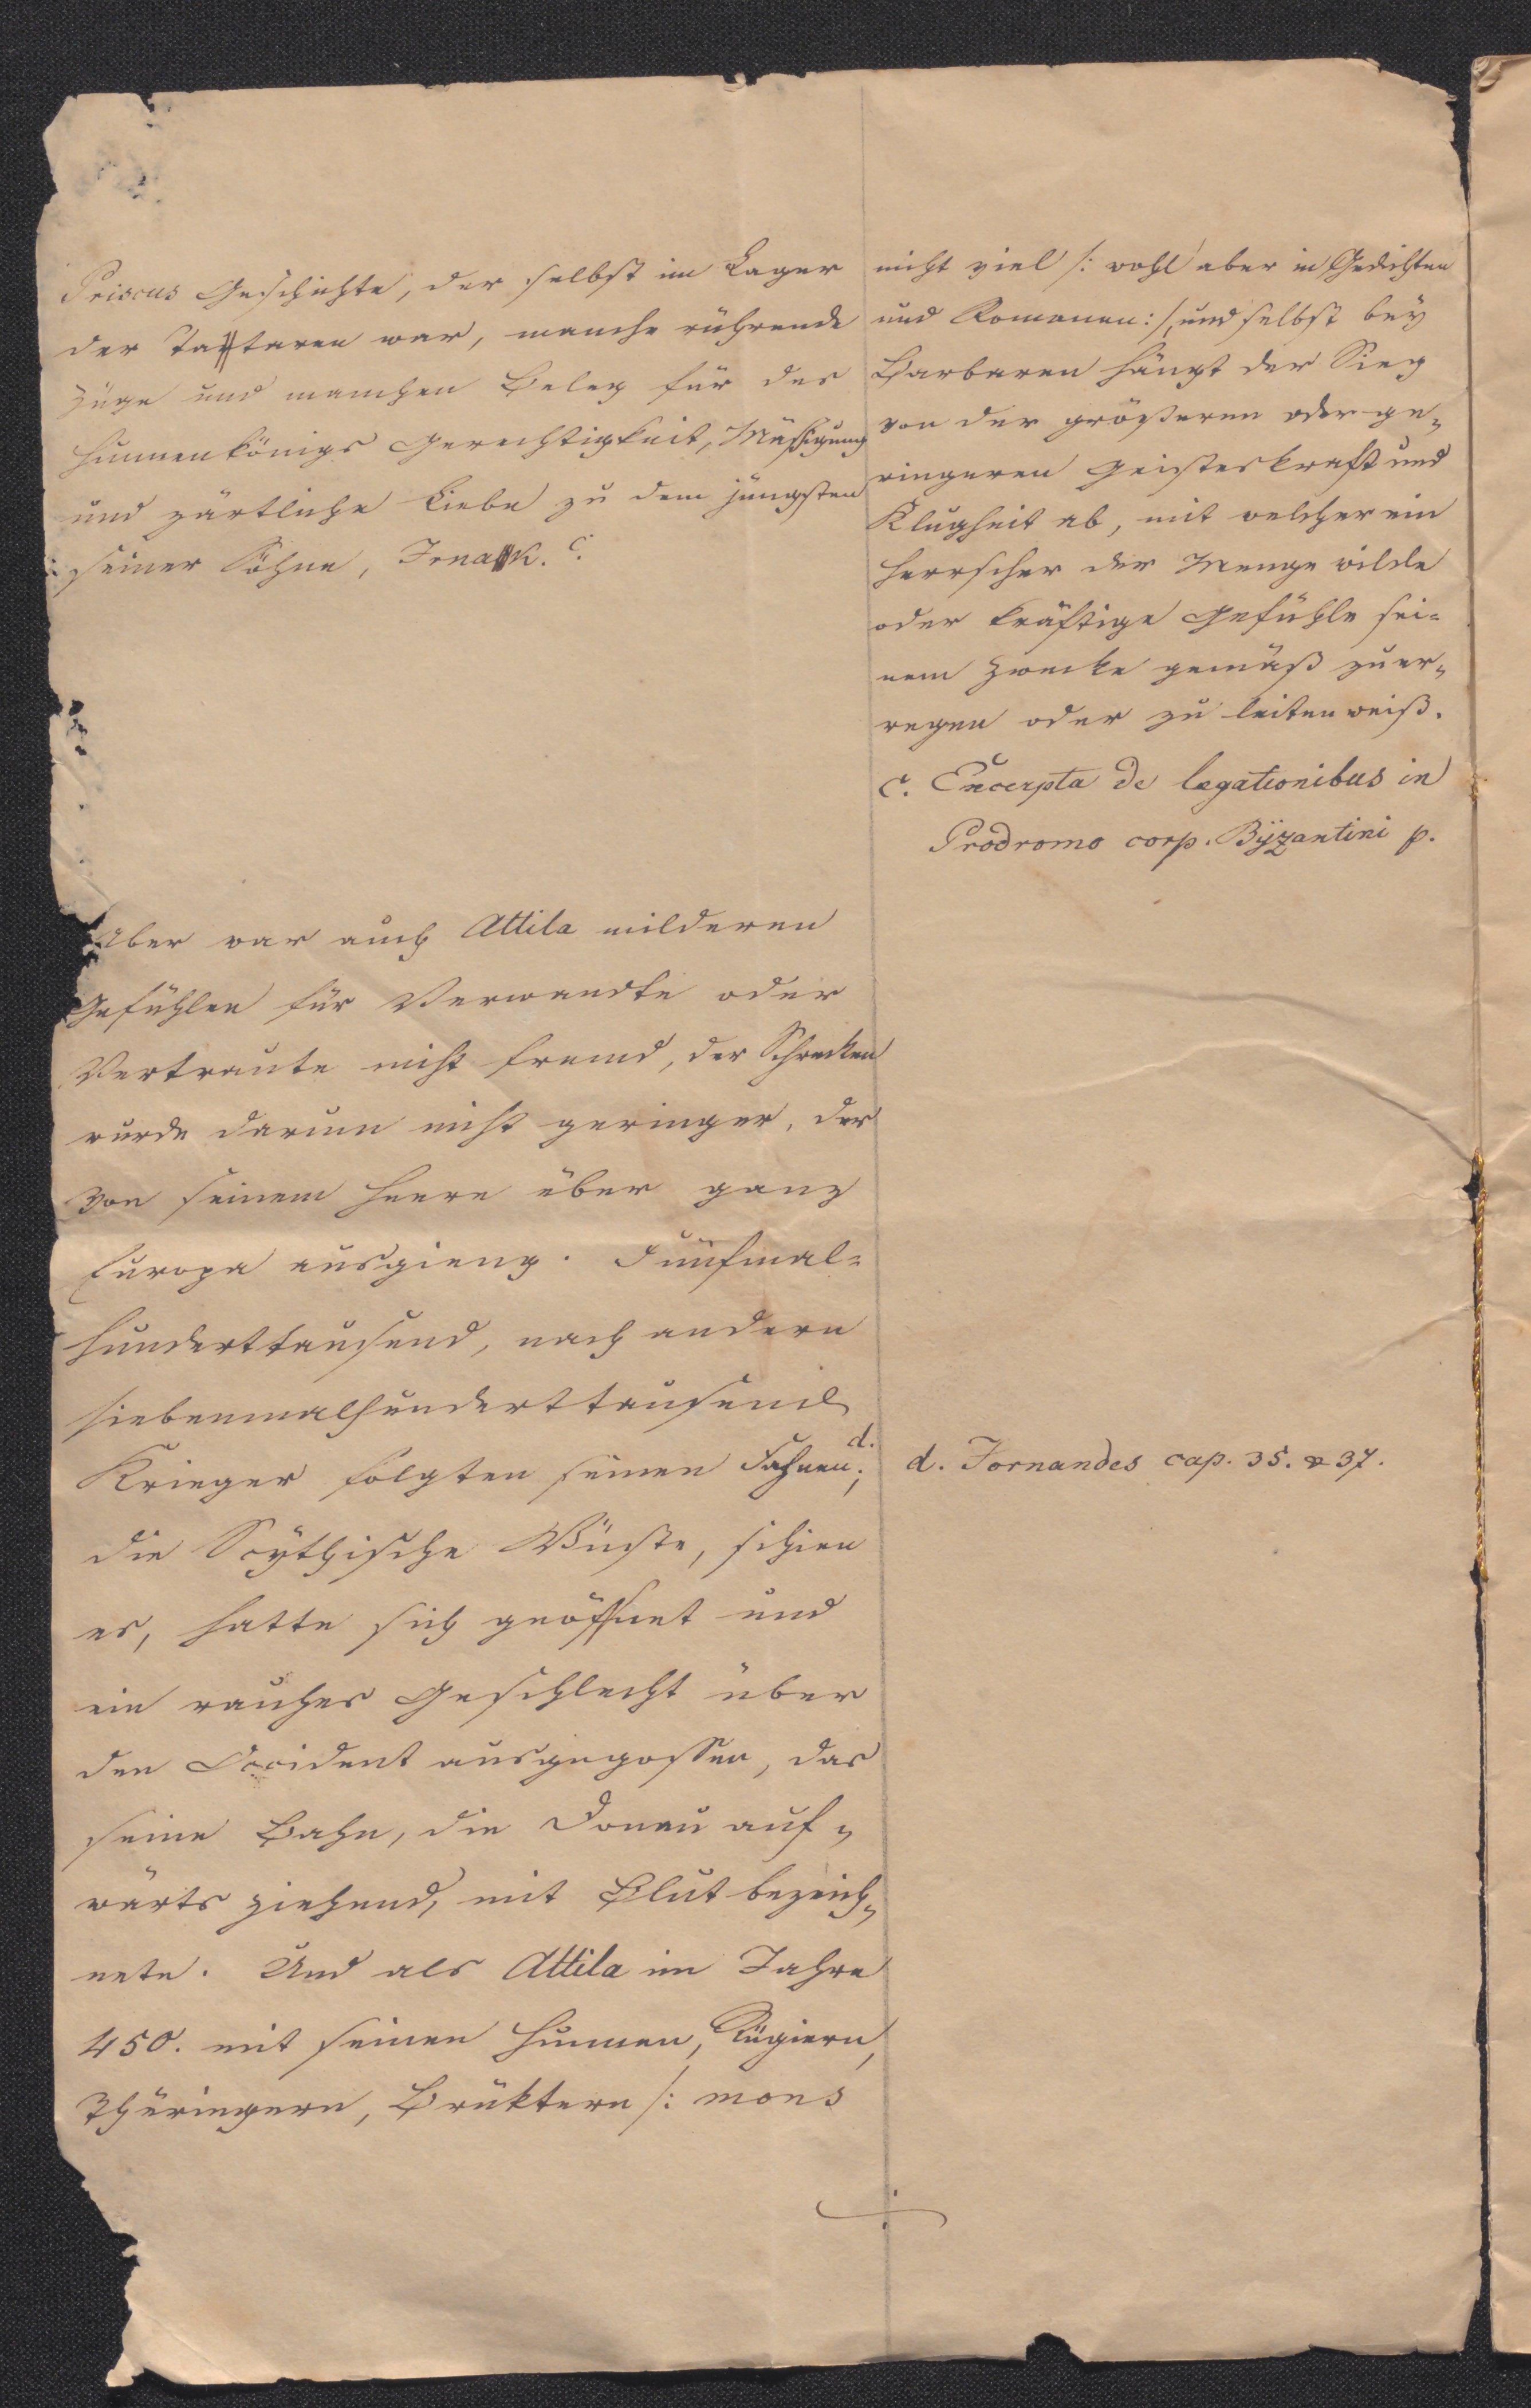 Priscus Geschichte, der selbst im Lager
der Tataren war, manche rührende
Züge und manchen Beleg für des
Hunnenkönigs Gerechtigkeit, Mäßigung
und zärtliche Liebe zu dem jüngsten
seiner Söhne, Irnak. c.
Aber war auch Attila milderen
Gefühlen für Verwandte oder
Vertraute nicht fremd, der Schrecken
wurde darum nicht geringer, der
von seinem Heere über ganz
Europa ausgieng. Fünfmal=
hunderttausend, nach andern
siebenmalhunderttausend
Krieger folgten seinen Fahnen d.;
die Scÿthische Wüste, schien
es, hatte sich geöffnet und
ein rauhes Geschlecht über
den Occident ausgegossen, das
seine Bahn, die Donau auf=
wärts ziehend, mit Blut bezeich=
nete. Und als Attila im Jahre
450. mit seinen Hunnen, Rugiern,
Thüringern, Brüktern /: mons
nicht viel /: wohl aber in Gedichten
und Romanen :/, und selbst beÿ
Barbaren hängt der Sieg
von der größeren oder ge=
ringeren Geisteskraft und
Klugheit ab, mit welcher ein
Herrscher der Menge wilde
oder kräftige Gefühle sei=
nem Zwecke gemäß zu er=
regen oder zu leiten weiß.
c. Excerpta de legationibus in
Prodromo corp. Bÿzantini p.
d. Jornandes cap. 35. & 37.